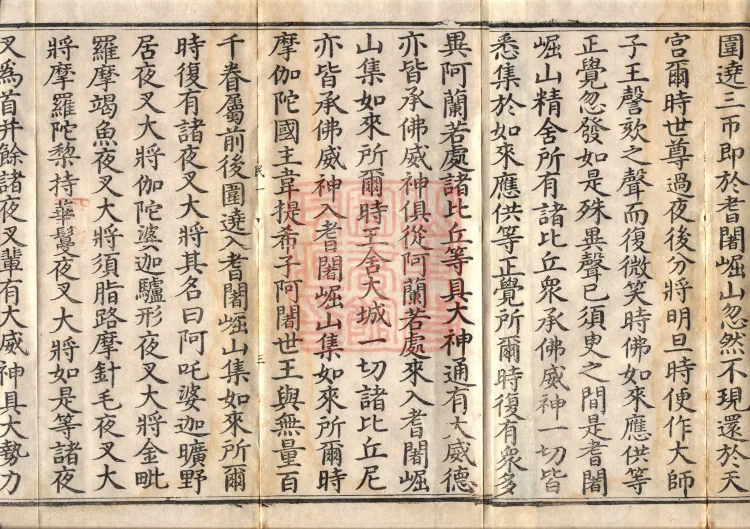 圍遶三帀即於耆闍崛山忽然不現還於天
宫爾時世尊過夜後分將明旦時使作大師
子王謦欬之聲而復微笑時佛如來應供等
正覺忽發如是殊異聲已須臾之間是耆闍
崛山精舍所有諸比丘衆承佛威神一切皆
悉集於如來應供等正覺所爾時復有衆多
異阿蘭若處諸比丘等具大神通有大威德
亦皆承佛威神俱從阿蘭若處來入耆闍崛
山集如來所爾時王舍大城一切諸比丘尼
亦皆承佛威神入耆闍崛山集如來所爾時
摩伽陀國主韋提希子阿闍世王與無量百
民一
三
千眷屬前後圍遶入耆闍崛山集如來所爾
時復有諸夜叉大將其名曰阿吒婆迦曠野
居夜叉大將伽陀婆迦驢形夜叉大將金毗
羅摩竭魚夜叉大將須脂路摩針毛夜叉大
將摩羅陀棃持華鬘夜叉大將如是等諸夜
叉爲首并餘諸夜叉輩有大威神具大勢力